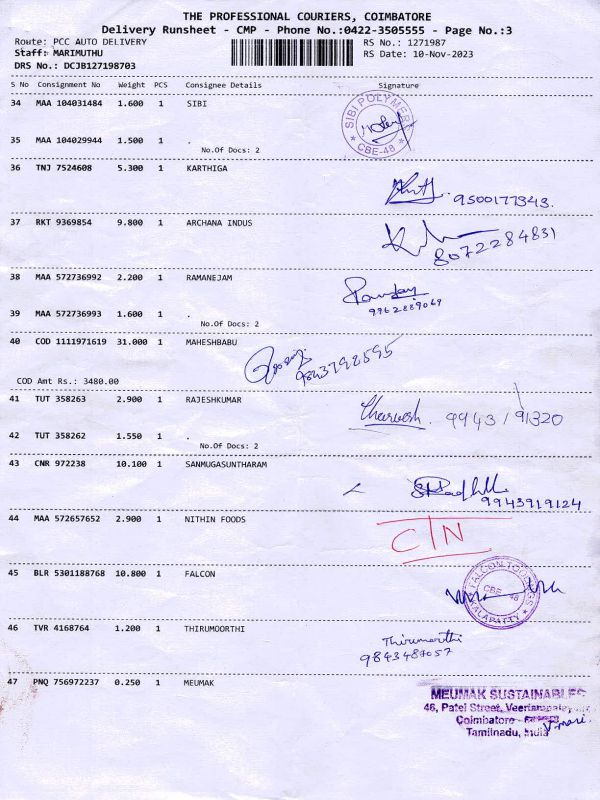 THE PROFESSIONAL COURIERS, COIMBATORE
Delivery Runsheet - CMP - Phone No.:0422-3505555 - Page No.:3
Route: PCC AUTO DELIVERY RS No.: 1271987
Staff: MARIMUTHU RS Date: 10-Nov-2023
DRS No.: DCJB127198703
S No Consignment No Weight PCS Consignee Details Signature
34 MAA 104031484 1.600 1 SIBI
SIBI POLYMERS
CBE-48
35 MAA 104029944 1.500 1 .
No.Of Docs: 2
36 TNJ 7524608 5.300 1 KARTHIGA
9500177343.
37 RKT 9369854 9.800 1 ARCHANA INDUS
8072284831
38 MAA 572736992 2.200 1 RAMANEJAM
9962889069
39 MAA 572736993 1.600 1 .
No.Of Docs: 2
40 COD 1111971619 31.000 1 MAHESHBABU
9843792595
COD Amt Rs.: 3480.00
41 TUT 358263 2.900 1 RAJESHKUMAR
9943191320
42 TUT 358262 1.550 1 .
No.Of Docs: 2
43 CNR 972238 10.100 1 SANMUGASUNTHARAM
9943919124
44 MAA 572657652 2.900 1 NITHIN FOODS
CTN
45 BLR 5301188768 10.800 1 FALCON
CBE 48
46 TVR 4168764 1.200 1 THIRUMOORTHI
Thirumorthi
9843487057
47 PNQ 756972237 0.250 1 MEUMAK
MEUMAK SUSTAINABLES
46, Patel Street,
Coimbatore
Tamilnadu, India